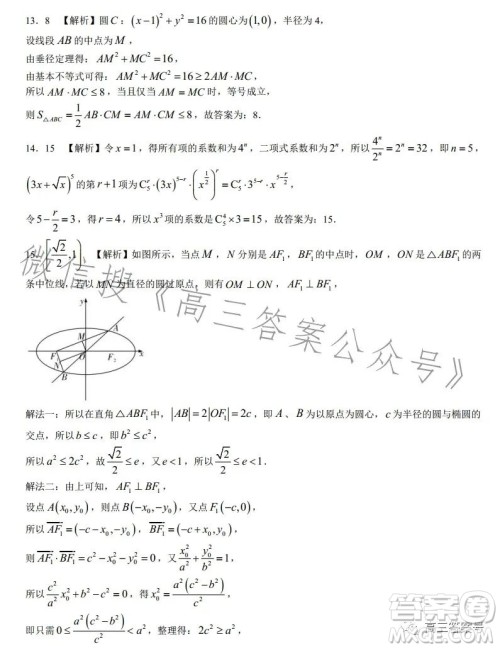 13. 8 【解析】圆 C：(x−1)²+y²=16 的圆心为(1,0)，半径为 4，
设线段 AB 的中点为 M，
由垂径定理得：AM²+MC²=16，
由基本不等式可得：AM²+MC²=16≥2AM·MC，
所以 AM·MC≤8，当且仅当 AM=MC 时，等号成立，
则 S△ABC=1/2 AB·CM=AM·CM≤8，故答案为：8.
14. 15 【解析】令 x=1，得所有项的系数和为 4ⁿ，二项式系数和为 2ⁿ，所以 4ⁿ/2ⁿ=2ⁿ=32，即 n=5，
(3x+√x)⁵ 的第 r+1 项为 C₅ʳ·(3x)^(5−r)·(x^(1/2))^r=C₅ʳ·3^(5−r)x^(5−r/2).
令 5−r/2=3，得 r=4，所以 x³ 项的系数是 C₅⁴×3=15，故答案为：15.
15. [√2/2,1) 【解析】如图所示，当点 M，N 分别是 AF₁，BF₁ 的中点时，OM，ON 是△ABF₁ 的两
条中位线，若以 MN 为直径的圆过原点，则有 OM⊥ON，AF₁⊥BF₁，
y
A
M
F₁
O
F₂
x
N
B
解法一：所以在直角△ABF₁ 中，|AB|=2|OF₁|=2c，即 A、B 为以原点为圆心，c 为半径的圆与椭圆的
交点，所以 b≤c，即 b²≤c²，
所以 a²≤2c²，故 √2/2≤e，又 e<1，所以 √2/2≤e<1.
解法二：由上可知，AF₁⊥BF₁，
设点 A(x₀,y₀)，则点 B(−x₀,−y₀)，又点 F₁(−c,0)，
所以 AF₁=(−c−x₀,−y₀)，BF₁=(−c+x₀,y₀)，
则 AF₁·BF₁=c²−x₀²−y₀²=0，又 x₀²/a²+y₀²/b²=1，
所以 c²/a² x₀²+b²−c²=0，得 x₀²=a²(c²−b²)/c²，
即只需 0≤a²(c²−b²)/c²<a²，整理得：2c²≥a²，
微信搜《高三答案公众号》
高三答案号